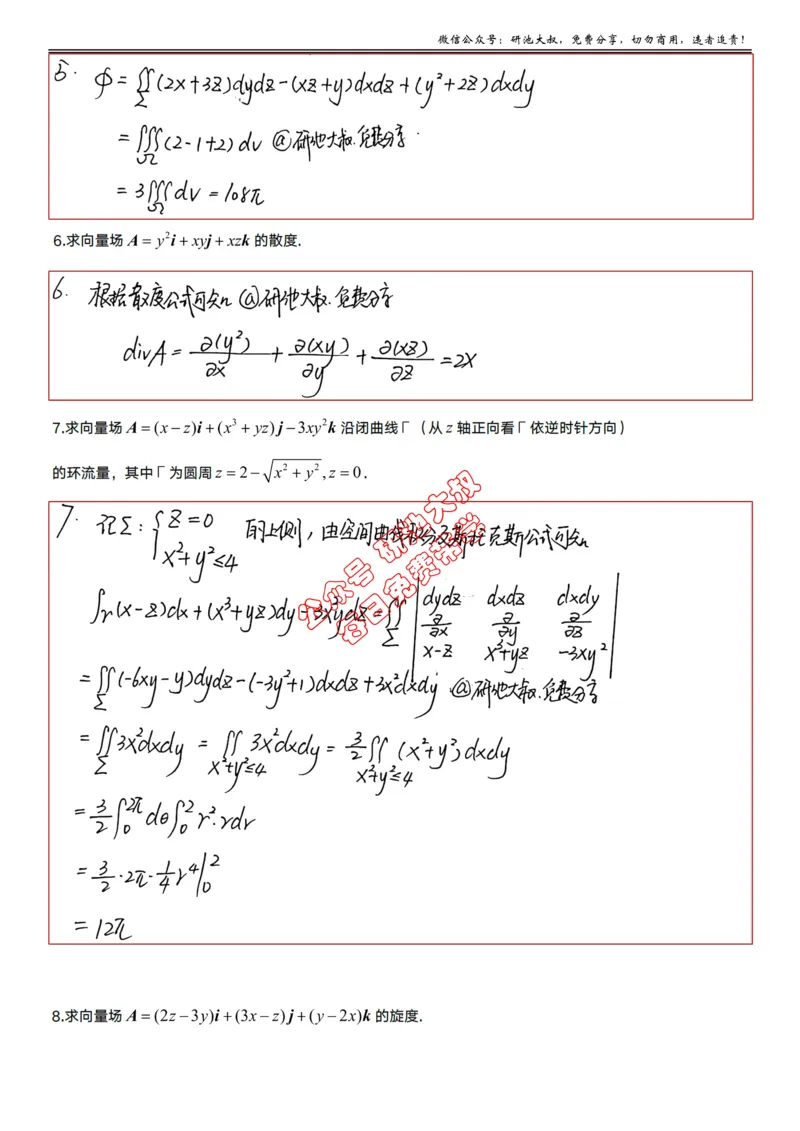 微信公众号：研池大叔，免费分享，切勿商用，违者追责！
5. Φ = ∬_Σ (2x+3z)dydz-(xz+y)dxdz+(y²+2z)dxdy
= ∭_Ω (2-1+2)dv @研池大叔.免费分享
= 3∭_Ω dv = 108π
6.求向量场 A = y²i + xyj + xzk 的散度.
6. 根据散度公式可知 @研池大叔.免费分享
divA = ∂(y²)/∂x + ∂(xy)/∂y + ∂(xz)/∂z = 2x
7.求向量场 A = (x-z)i + (x³+yz)j - 3xy²k 沿闭曲线Γ（从 z 轴正向看Γ依逆时针方向）
的环流量，其中Γ为圆周 z = 2 - √(x²+y²), z = 0.
7. 记Σ: { z=0 的上侧，由空间曲线积分及斯托克斯公式可知
x²+y²≤4
∫_Γ (x-z)dx+(x³+yz)dy-3xy²dz = ∬_Σ | dydz dxdz dxdy
∂/∂x ∂/∂y ∂/∂z
x-z x³+yz -3xy² |
= ∬_Σ (-6xy-y)dydz-(-3y²+1)dxdz+3x²dxdy @研池大叔.免费分享
= ∬_Σ 3x²dxdy = ∬_{x²+y²≤4} 3x²dxdy = 3/2 ∬_{x²+y²≤4} (x²+y²)dxdy
= 3/2 ∫_0^{2π} dθ ∫_0^2 r²·rdr
= 3/2 · 2π · 1/4 r⁴ |_0^2
= 12π
公众号 研池大叔
每日免费带学
8.求向量场 A = (2z-3y)i + (3x-z)j + (y-2x)k 的旋度.